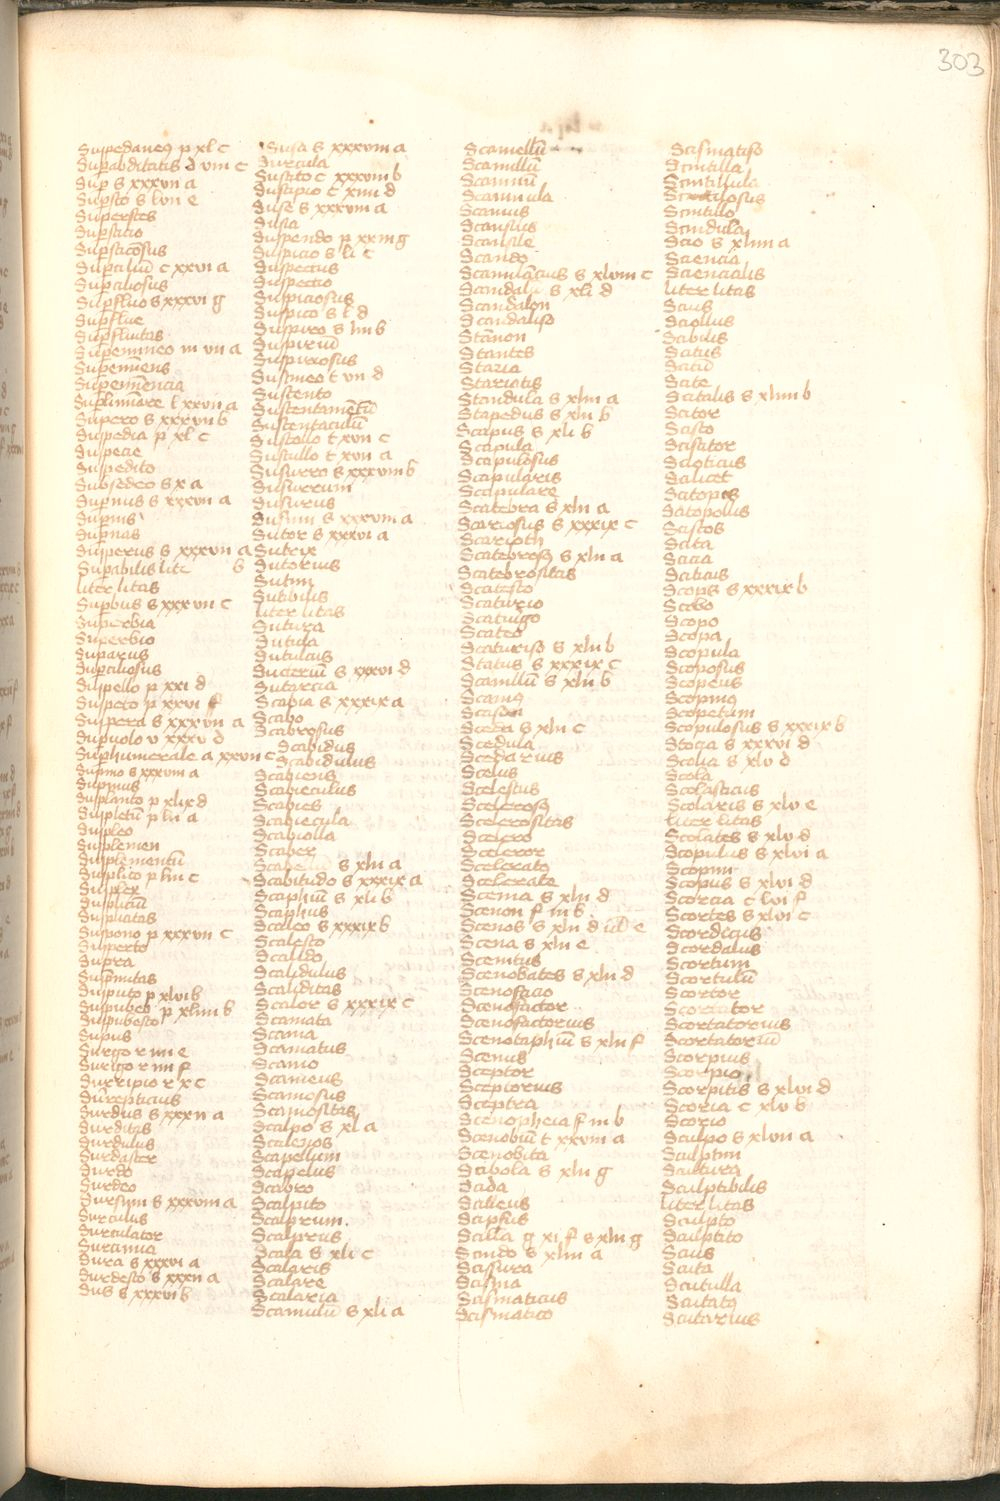 303
Suppedaneꝰ p xl c
Sup s xxxvii a
Supsto s lvii e
Superstes
Supstitio
Supsticōsus
Supciliū c xxvi a
Supciliosus
Supfluo s xxxvi g
Supflue
Supfluitas
Supemineo m vii a
Supeminēs
Supeminēcia
Supliminare l xxvii a
Supero s xxxvii b
Suppedia p xl c
Suppecie
Suppedito
Subsedeo s x a
Supnus s xxxvii a
Supnis
Supnas
Superus s xxxvii a
Supabilis lite b
liter litas
Supbus s xxxvii c
Superbia
Superbio
Suparus
Supciliosus
Suppello p xxi d
Suppeto p xxvi f
Suppera s xxxvii a
Supuolo v xxxv d
Suphumerale a xxxvii c
Supmo s xxxvii a
Supimus
Supplanto p xlix d
Suppletū p lii a
Suppleo
Supplemen
Supplementū
Supplico p liii c
Supplex
Supplicū
Suppono p xxxvii c
Supperto
Supra
Supmitas
Supputo p xlvi b
Suppubeo p xliiii b
Suppubesco
Supus
Surgo r iiii e
Surigo r iiii f
Surripio r x c
Surepticius
Surdus s xxxii a
Surditas
Surdulus
Surdaster
Surdo
Surdeo
Sursum s xxxviii a
Surculus
Surculator
Surcinia
Sura s xxxvi a
Surdesco s xxxii a
Sus s xxxvi b
Susa s xxxviii a
Surcula
Suscito c xxxviii b
Suscipio c xiii d
Suse s xxxviii a
Susia
Suspendo p xxiii g
Suspicio s li c
Suspectus
Suspectio
Suspiciosus
Suspico s l d
Suspiro s liii b
Suspiriū
Suspiriosus
Sustineo t vii d
Sustento
Sustentamētū
Sustentaculū
Sustollo t xvii c
Sustullo t xvii a
Susurro s xxxviii b
Susurrum
Susurus
Susum s xxxviii a
Sutor s xxxvi a
Sutrix
Sutorius
Sutim
Sutibilis
liter litas
Sutura
Sutula
Sutulus
Sucertū s xxxvi d
Sutarcia
Scabia s xxxix a
Scabo
Scabrosus
Scabidus
Scabidulus
Scabiens
Scabieculus
Scabies
Scabiecula
Scabiolla
Scaber
s xlii a
Scabitudo s xxxix a
Scaphiū s xli b
Scaphus
Scaleo s xxxix b
Scalesco
Scalido
Scalidulus
Scaliditas
Scalor s xxxix c
Scamata
Scama
Scamatus
Scamo
Scameus
Scamosus
Scamositas
Scalpo s xl a
Scalenos
Scapellum
Scapelus
Scabro
Scalpito
Scalprum
Scalprus
Scala s xli c
Scalaris
Scalare
Scalaria
Scamulū s xli a
Scamellū
Scamillū
Scamnū
Scamnula
Scamus
Scansus
Scansile
Scando
Scandalū s xli d
Scandalon
Scandaliso
Stānon
Stantes
Staria
Stariotis
Standula s xliii a
Stapedus s xlii b
Scapus s xli b
Scapula
Scapulosus
Scapularis
Scapulare
Scatebra s xlii a
Scariosus s xxxix c
Scarioth
Scatebrosꝰ s xlii a
Scatebrositas
Scatesco
Scaturio
Scaturigo
Scateo
Scaturiso s xlii b
Status s xxxix c
Scamillū s xlii b
Scamꝰ
Sceda s xlii c
Scedula
Scedarius
Scelus
Scelestus
Scelerosꝰ
Scelerositas
Scelero
Sceleror
Scelerato
Scelerate
Scema s xlii d
Scenon f iii b
Scenos s xlii d id e
Scena s xlii e
Scenitus
Scenobates s xlii d
Scenofacio
Scenofactor
Scenofactorius
Scenotaphiū s xlii f
Scenus
Sceptor
Sceptorius
Sceptra
Scenopheia f iii b
Scenobiū t xxvii a
Scenobita
Scibola s xlii g
Scida
Scilicus
Sciphus
Scilla g xi f s xlii g
Scindo s xliii a
Scissura
Scisma
Scismaticus
Scismatico
Scismatiso
Scintilla
Scintillula
Scintillosus
Scintillo
Scindula
Scio s xliiii a
Sciencia
Sciencialis
liter litas
Scius
Sciolus
Scibilis
Scitus
Scitū
Scite
Scitalis s xliiii b
Scitor
Scisco
Scisitor
Scioticus
Scilicet
Scitopis
Scitopolis
Scistos
Scita
Scicia
Scitiais
Scops s xxxix b
Scobo
Scopo
Scopa
Scopula
Scoposus
Scopeus
Scopinꝰ
Scopetum
Scopulosus s xxxix b
Stogia s xxxvi d
Scolia s xlv d
Scola
Scolasticus
Scolaris s xlv e
liter litas
Scolates s xlv d
Scopulus s xlvi a
Scopini
Scopus s xlvi d
Scorcia c lvi f
Scortes s xlvi c
Scordicus
Scordalus
Scortum
Scortulū
Scortor
Scortator
Scortatorius
Scortatoriū
Scorpius
Scorpio
Scorpitis s xlvi d
Scoria c xlv b
Scorio
Sculpo s xlvii a
Sculptim
Scultura
Sculptibilis
liter litas
Sculpto
Sculptito
Scius
Scuta
Scutulla
Scutatꝰ
Scutarius